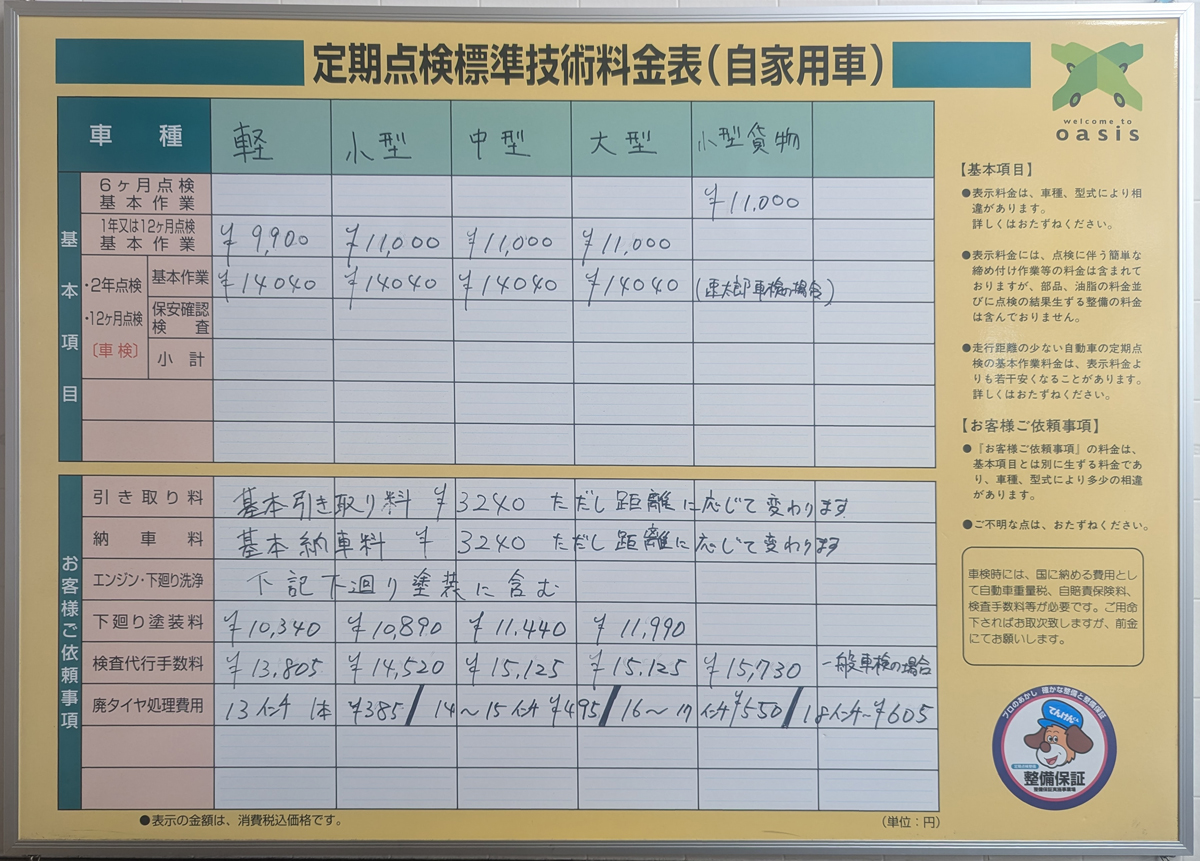 定期点検標準技術料金表(自家用車)
welcome to
oasis
車種 軽 小型 中型 大型 小型貨物
基本項目
6ヶ月点検
基本作業 ¥11,000
1年又は12ヶ月点検
基本作業 ¥9,900 ¥11,000 ¥11,000 ¥11,000
・2年点検
・12ヶ月点検
〔車検〕
基本作業 ¥14040 ¥14040 ¥14040 ¥14040 (車検の場合)
保安確認
検査
小計
お客様ご依頼事項
引き取り料 基本引き取り料 ¥3240 ただし距離に応じて変わります
納車料 基本納車料 ¥3240 ただし距離に応じて変わります
エンジン・下廻り洗浄 下記下廻り塗装に含む
下廻り塗装料 ¥10,340 ¥10,890 ¥11.440 ¥11,990
検査代行手数料 ¥13,805 ¥14,520 ¥15,125 ¥15,125 ¥15,730 一般車検の場合
廃タイヤ処理費用 13インチ 1本 ¥385/14〜15インチ ¥495/16〜17インチ¥550/18インチ〜¥605
●表示の金額は、消費税込価格です。
(単位:円)
【基本項目】
●表示料金は、車種、型式により相
違があります。
詳しくはおたずねください。
●表示料金には、点検に伴う簡単な
締め付け作業等の料金は含まれて
おりますが、部品、油脂の料金並
びに点検の結果生ずる整備の料金
は含んでおりません。
●走行距離の少ない自動車の定期点
検の基本作業料金は、表示料金よ
りも若干安くなることがあります。
詳しくはおたずねください。
【お客様ご依頼事項】
●『お客様ご依頼事項』の料金は、
基本項目とは別に生ずる料金であ
り、車種、型式により多少の相違
があります。
●ご不明な点は、おたずねください。
車検時には、国に納める費用とし
て自動車重量税、自賠責保険料、
検査手数料等が必要です。ご用命
下さればお取次致しますが、前金
にてお願いします。
プロのあかし 確かな整備と整備保証
てんけんくん
整備保証
整備保証実施事業場